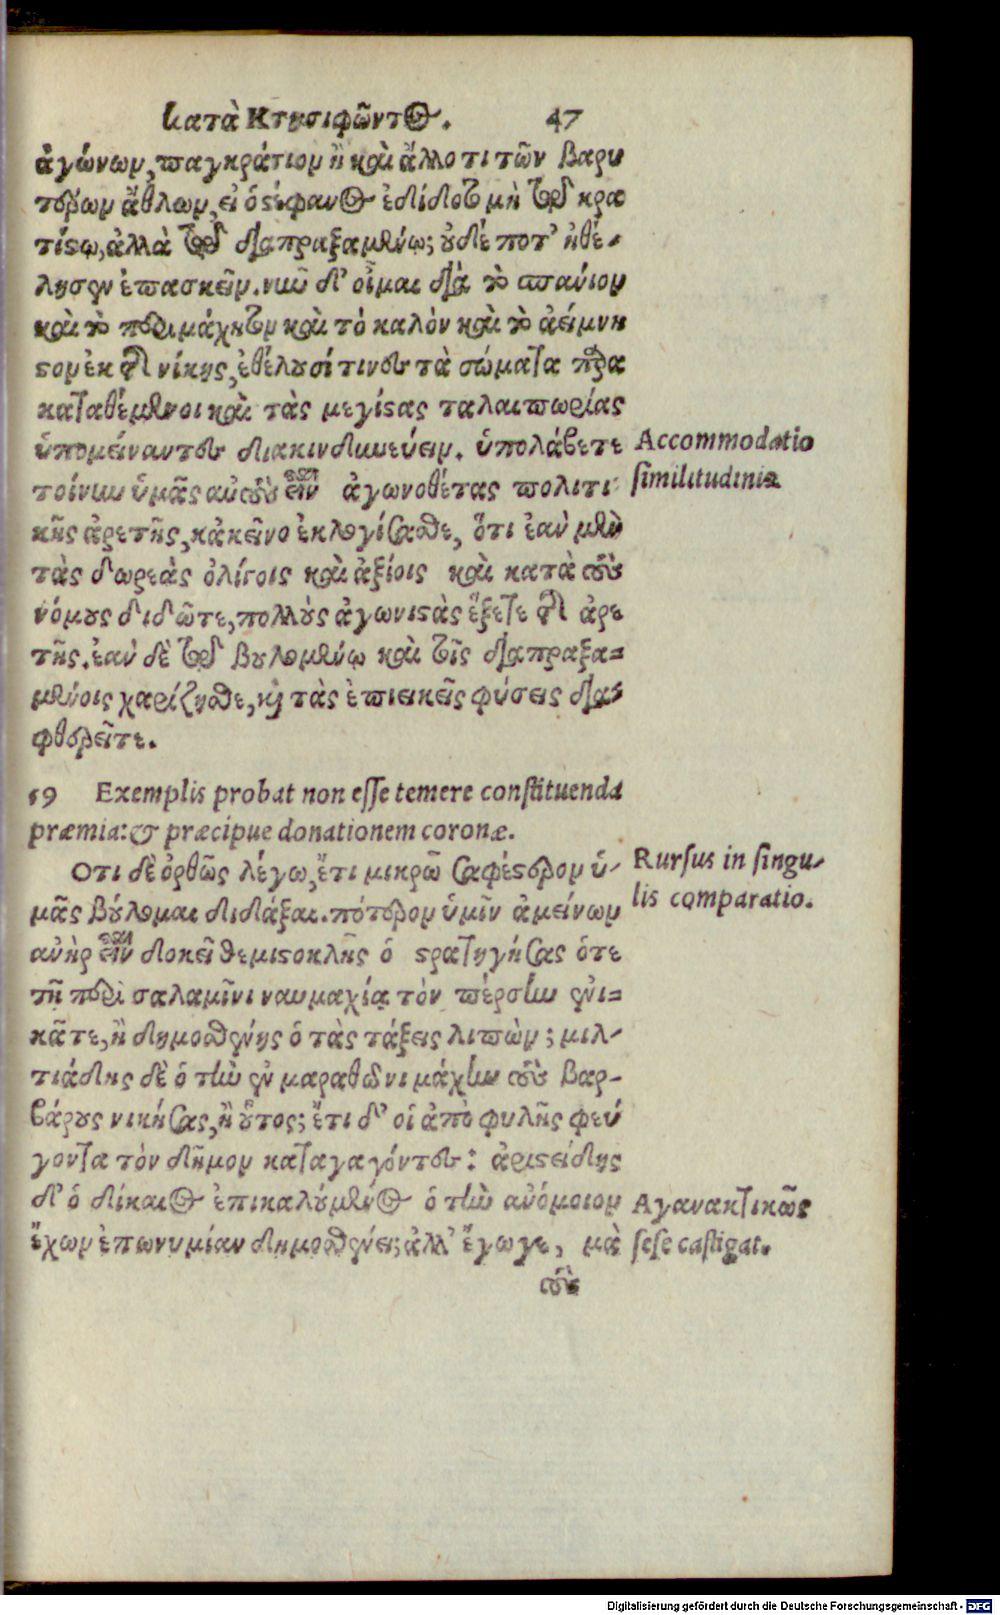 κατὰ Κτησιφῶντος. 47
ἀγώνων, παγκράτιον ἢ καὶ ἄλλο τι τῶν βαρυ
τέρων ἄθλων, εἰ ὁ στέφανος ἐδίδοτο μὴ τῷ κρα
τίστῳ, ἀλλὰ τῷ διαπραξαμένῳ; οὐδέ ποτ' ἠθέ-
λησεν ἐπασκεῖν. νῦν δ' οἶμαι διὰ τὸ σπάνιον
καὶ τὸ περιμάχητον καὶ τὸ καλὸν καὶ τὸ ἀείμνη
στον ἐκ τῆς νίκης, ἐθέλουσί τινες τὰ σώματα παρα
καταθέμενοι καὶ τὰς μεγίστας ταλαιπωρίας
ὑπομείναντες διακινδυνεύειν. ὑπολάβετε
τοίνυν ὑμᾶς αὐτοὺς εἶναι ἀγωνοθέτας πολιτι
κῆς ἀρετῆς, κἀκεῖνο ἐκλογίσασθε, ὅτι ἐὰν μὲν
τὰς δωρεὰς ὀλίγοις καὶ ἀξίοις καὶ κατὰ τοὺς
νόμους διδῶτε, πολλοὺς ἀγωνιστὰς ἕξετε τῆς ἀρε
τῆς. ἐὰν δὲ τῷ βουλομένῳ καὶ τοῖς διαπραξα-
μένοις χαρίζησθε, καὶ τὰς ἐπιεικεῖς φύσεις δια-
φθερεῖτε.
Accommodatio
similitudinis.
59 Exemplis probat non esse temere constituenda
præmia: & præcipue donationem coronæ.
Οτι δὲ ὀρθῶς λέγω, ἔτι μικρῷ σαφέστερον ὑ-
μᾶς βούλομαι διδάξαι. πότερον ὑμῖν ἀμείνων
ἀνὴρ εἶναι δοκεῖ θεμιστοκλῆς ὁ στρατηγήσας ὅτε
τῇ περὶ σαλαμῖνι ναυμαχίᾳ τὸν πέρσην ἐνι-
κᾶτε, ἢ δημοσθένης ὁ τὰς τάξεις λιπὼν; μιλ-
τιάδης δὲ ὁ τὴν ἐν μαραθῶνι μάχην τοὺς βαρ-
βάρους νικήσας, ἢ οὗτος; ἔτι δ' οἱ ἀπὸ φυλῆς φεύ
γοντα τὸν δῆμον καταγαγόντες: ἀριστείδης
δ' ὁ δίκαιος ἐπικαλούμενος ὁ τὴν ἀνόμοιον
ἔχων ἐπωνυμίαν δημοσθένει; ἀλλ' ἔγωγε, μὰ
τοὺς
Rursus in singu-
lis comparatio.
Αγανακτικῶς
sese castigat.
Digitalisierung gefördert durch die Deutsche Forschungsgemeinschaft - DFG